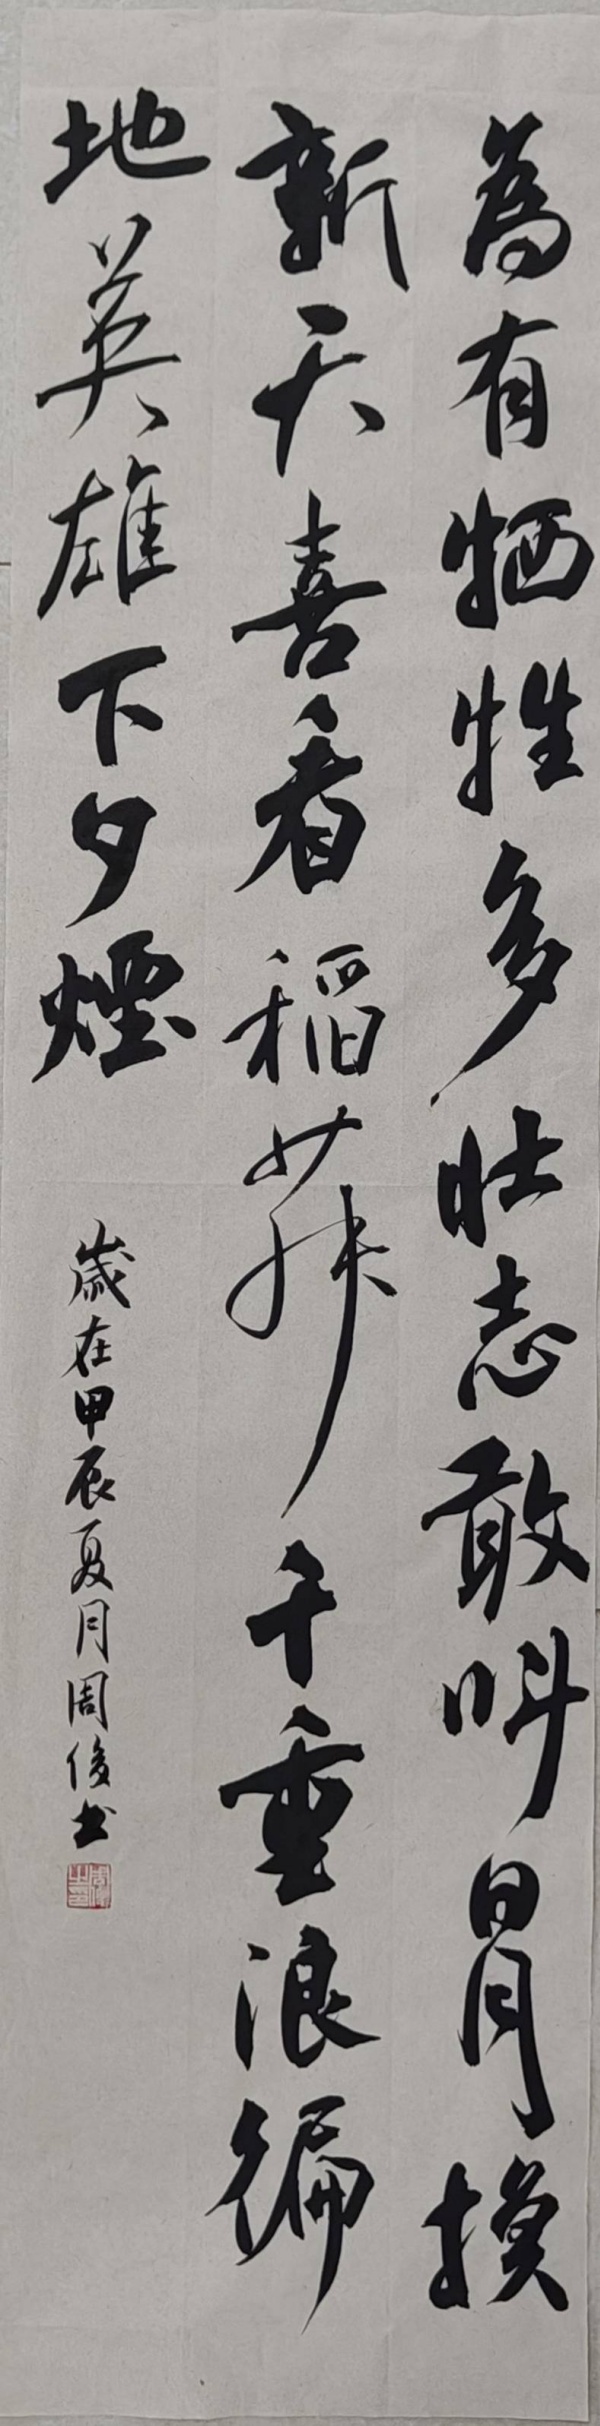 為有牺牲多壮志敢叫日月換
新天喜看稻菽千重浪徧
地英雄下夕煙
歲在甲辰夏月周俊书